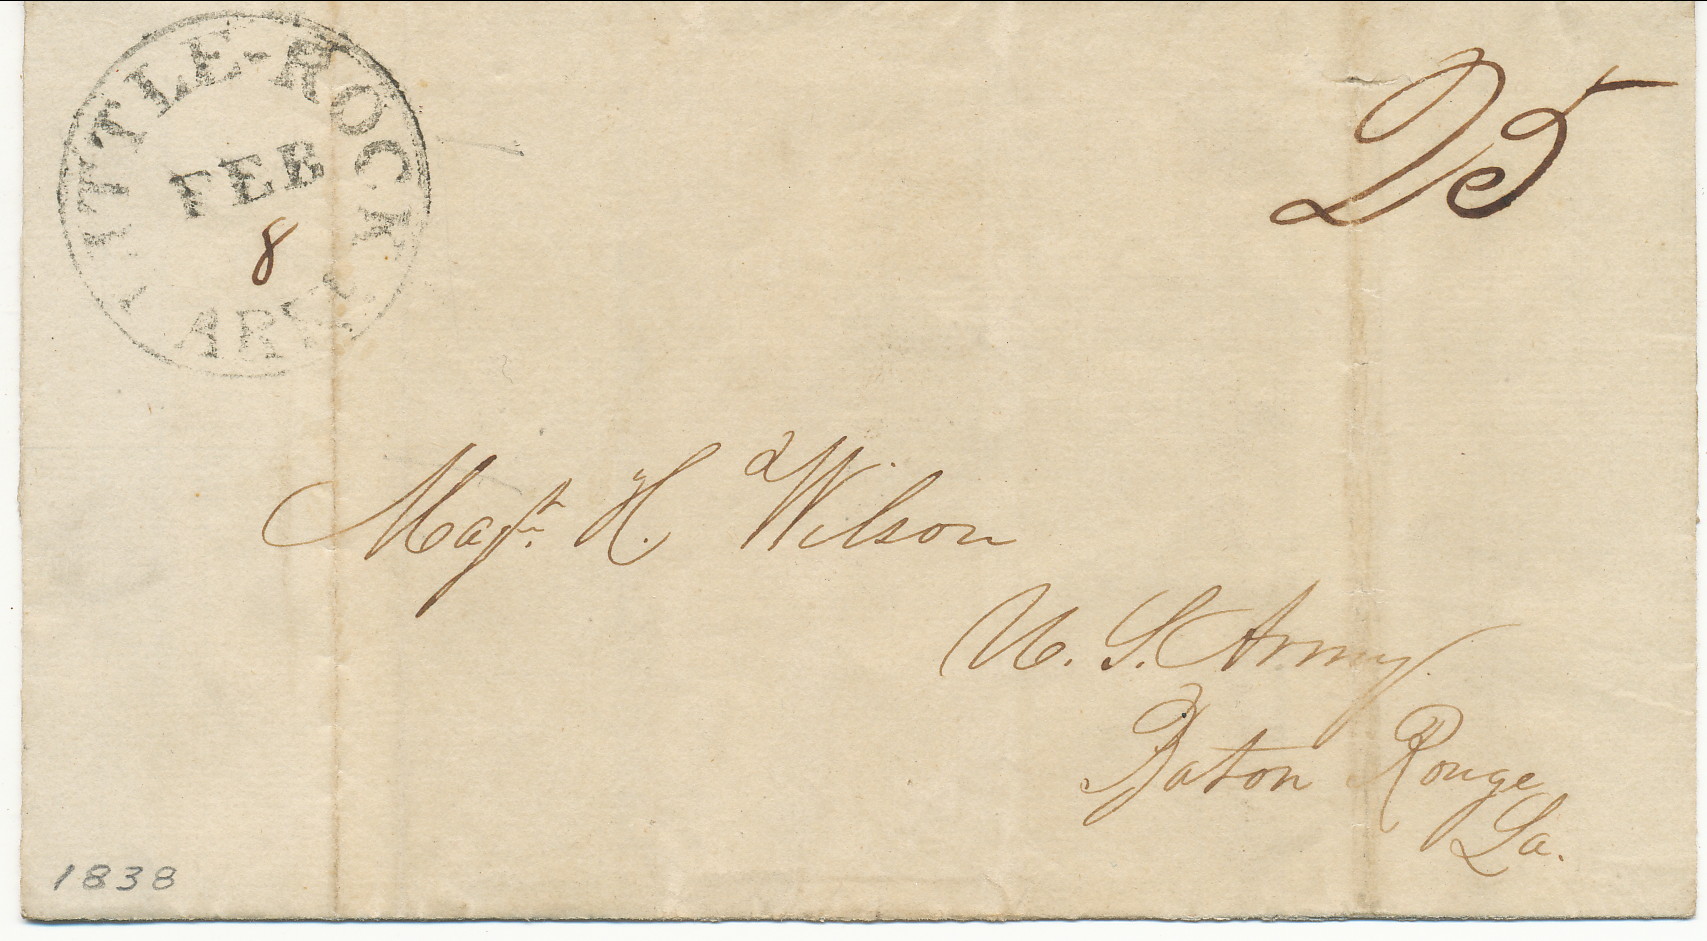 LITTLE-ROCK
FEB
8
ARK.
25
Maj. H. Wilson
U. S. Army
Baton Rouge
La.
1838